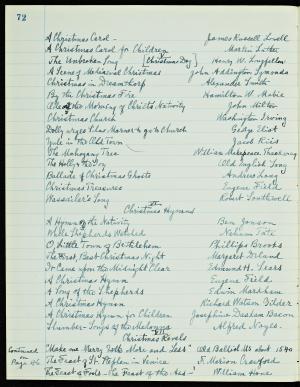 72
A Christmas Carol - James Russell Lowell
A Christmas Carol for Children Martin Luther
The Unbroken Song [Christmas Day] Henry W. Longfellow
A Scene of Mediaeval Christmas John Addington Symonds
Christmas in Dreamthorp Alexander Smith
By the Christmas Fire Hamilton W. Mabie
Ode on the Morning of Christ's Nativity John Milton
Christmas Church Washington Irving
Dolly urges Silas Marner to go to Church George Eliot
Yule in the Old Town Jacob Riis
The Mahogany Tree William Makepeace Thackeray
The Holly and the Ivy Old English Song
Ballade of Christmas Ghosts Andrew Lang
Christmas Treasures Eugene Field
Wassailer's Song Robert Southwell
VI
Christmas Hymns
A Hymn of the Nativity Ben Jonson
While Shepherds Watched Nahum Tate
O, Little Town of Bethlehem Phillips Brooks
The First, Best Christmas Night Margaret Deland
It Came upon the Midnight Clear Edmund H. Sears
A Christmas Hymn Eugene Field
A Song of the Shepherds Edwin Markham
A Christmas Hymn Richard Watson Gilder
A Christmas Hymn for Children Josephine Daskam Bacon
Slumber-Songs of the Madonna Alfred Noyes
VII
Christmas Revels
"Make me Merry Both More and Less" Old Balliol Ms. about 1540
The Feast of St. Stephen in Venice F. Marion Crawford
The Feast of Fools - The Feast of the Ass - William Hone
Continued on Page